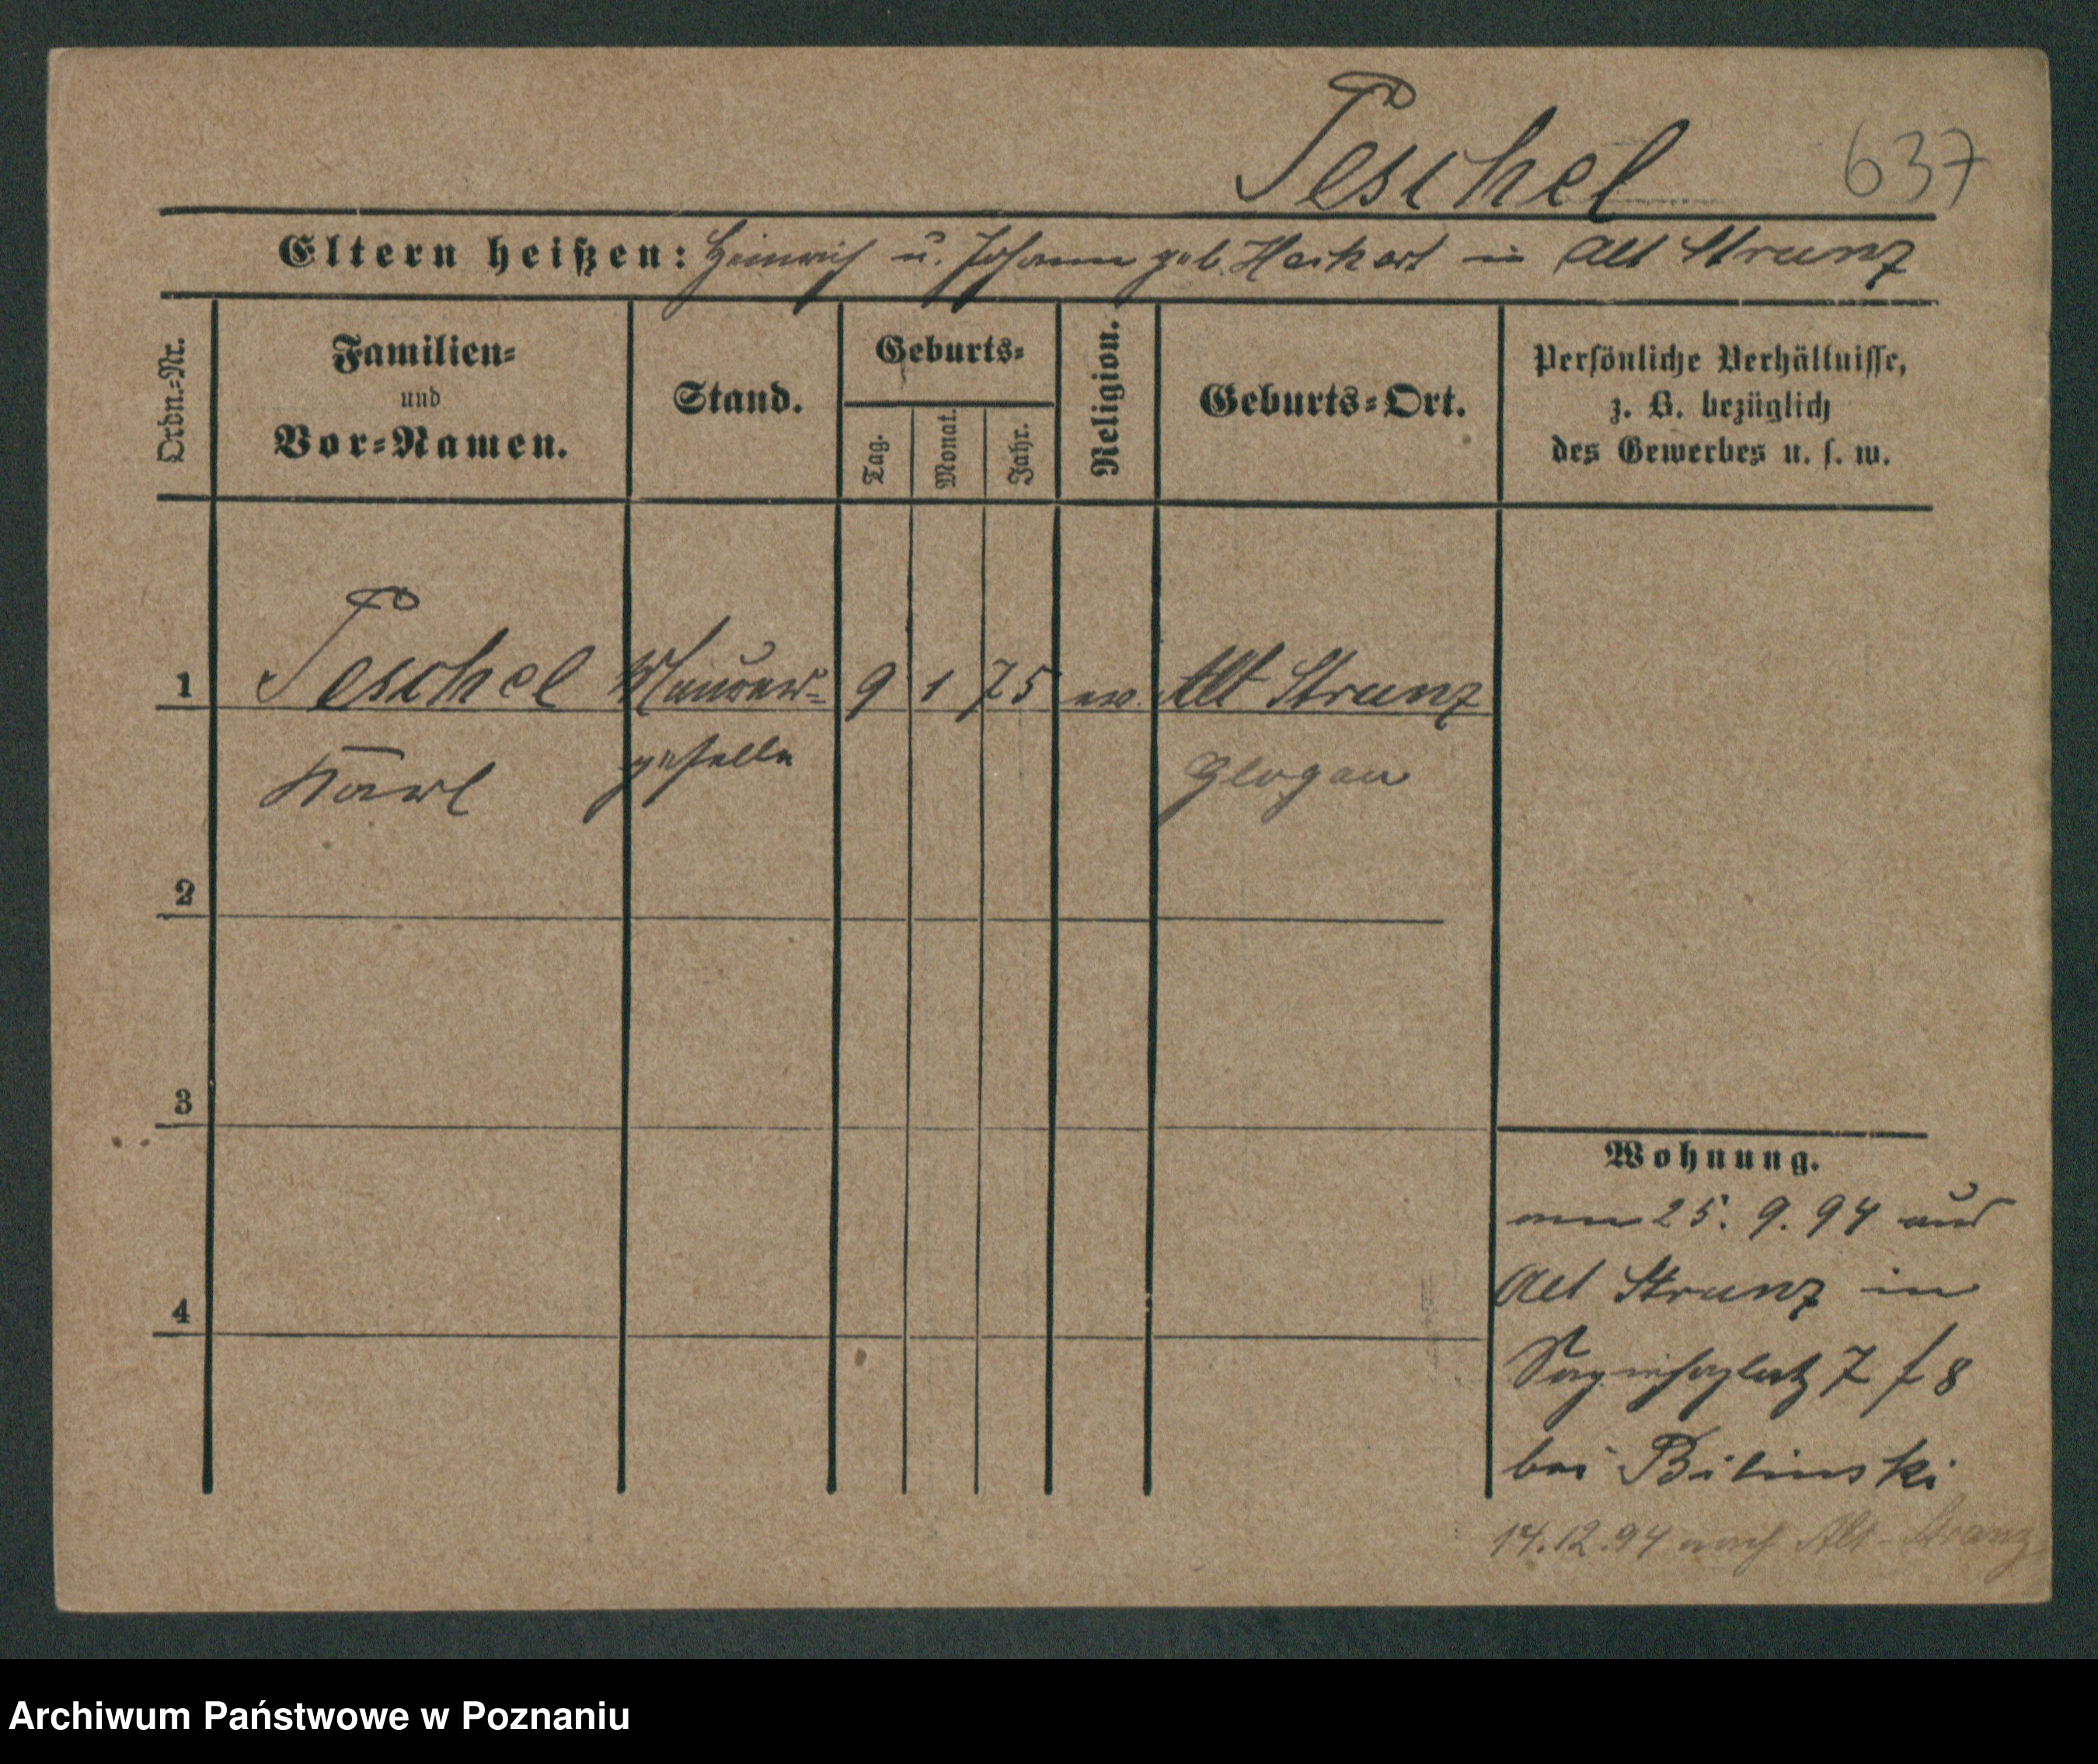 Peschel 637
Eltern heißen: Heinrich u. Johanna geb. Heikert in Alt Strunz
Ordn.=Nr.
Familien=
und
Vor=Namen.
Stand.
Geburts=
Tag.
Monat.
Jahr.
Religion.
Geburts=Ort.
Persönliche Verhältnisse,
z. B. bezüglich
des Gewerbes u. s. w.
1 Peschel Maurer= 9 1 75 ev. Alt Strunz
Karl geselle Glogau
2
3
4
Wohnung.
am 25. 9. 94 aus
Alt Strunz in
Sapiehaplatz 7 f 8
bei Bilinski
14.12.94 nach Alt-Strunz
Archiwum Państwowe w Poznaniu